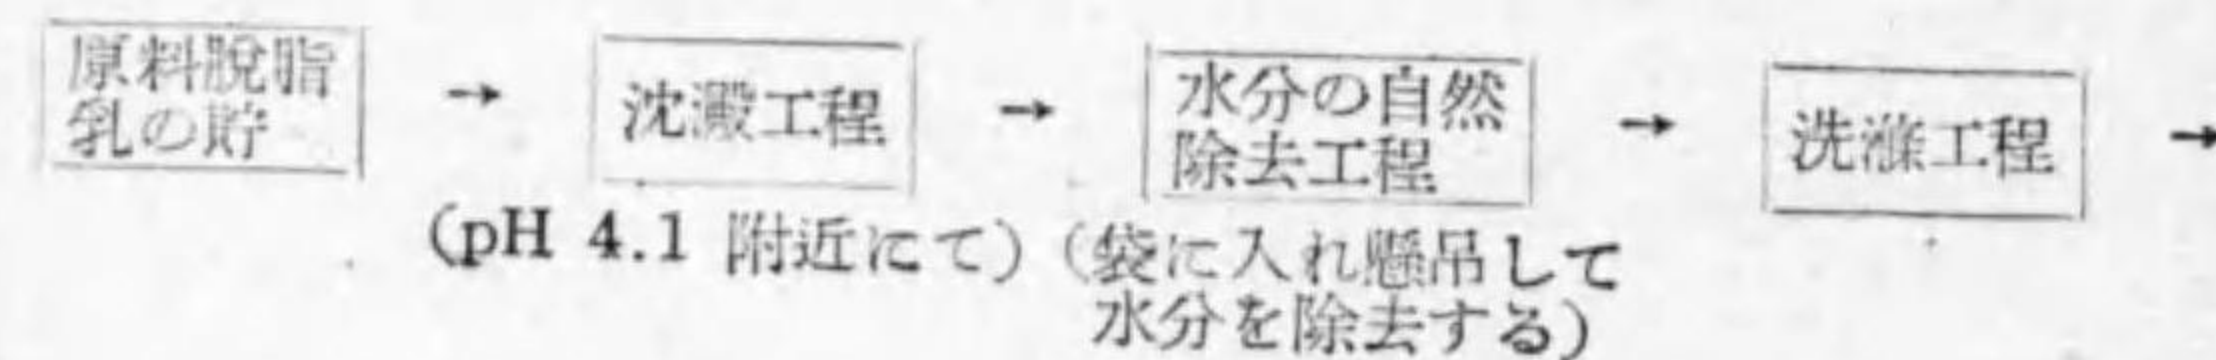 原料脱脂
乳の貯
→
沈澱工程
→
水分の自然
除去工程
→
洗滌工程
→
(pH 4.1 附近にて)
(袋に入れ懸吊して
水分を除去する)